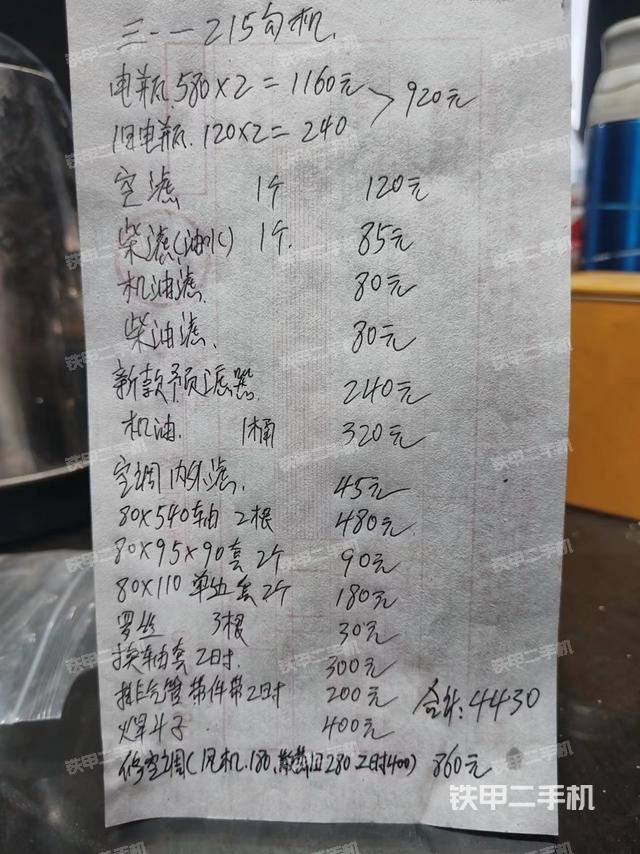 三一215勾机
电瓶.580×2=1160元 > 920元
旧电瓶.120×2=240
空滤 1个 120元
柴滤(油水) 1个. 85元
机油滤. 80元
柴油滤. 80元
新款预滤器 240元
机油. 1桶 320元
空调内外滤. 45元
80×540轴 2根 480元
80×95×90套 2个 90元
80×110 单边套2个 180元
罗丝 3根 30元
换轴套工时. 300元
排气管带件带工时 200元 合计:4430
焊斗子. 400元
修空调(风机.180,散热口280工时400) 860元
铁甲二手机